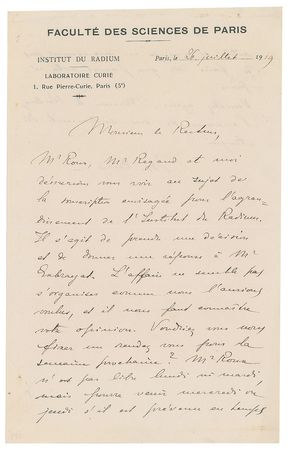 FACULTÉ DES SCIENCES DE PARIS
INSTITUT DU RADIUM
LABORATOIRE CURIE
1, Rue Pierre-Curie, Paris (5e)
Paris, le 26 juillet 1919
Monsieur le Recteur,
Mr Roux, Mr Regaud et moi
désirerions vous voir au sujet de
la souscription envisagée pour l'agran-
dissement de l'Institut du Radium.
Il s'agit de prendre une décision
et de donner une réponse à Mr
L'affaire ne semble pas
s'organiser comme nous l'aurions
voulu, et il nous faut connaître
votre opinion. Voudriez vous nous
fixer un rendez vous pour la
semaine prochaine? Mr Roux
n'est pas libre lundi ni mardi,
mais pourra venir mercredi ou
jeudi s'il est prévenu en temps